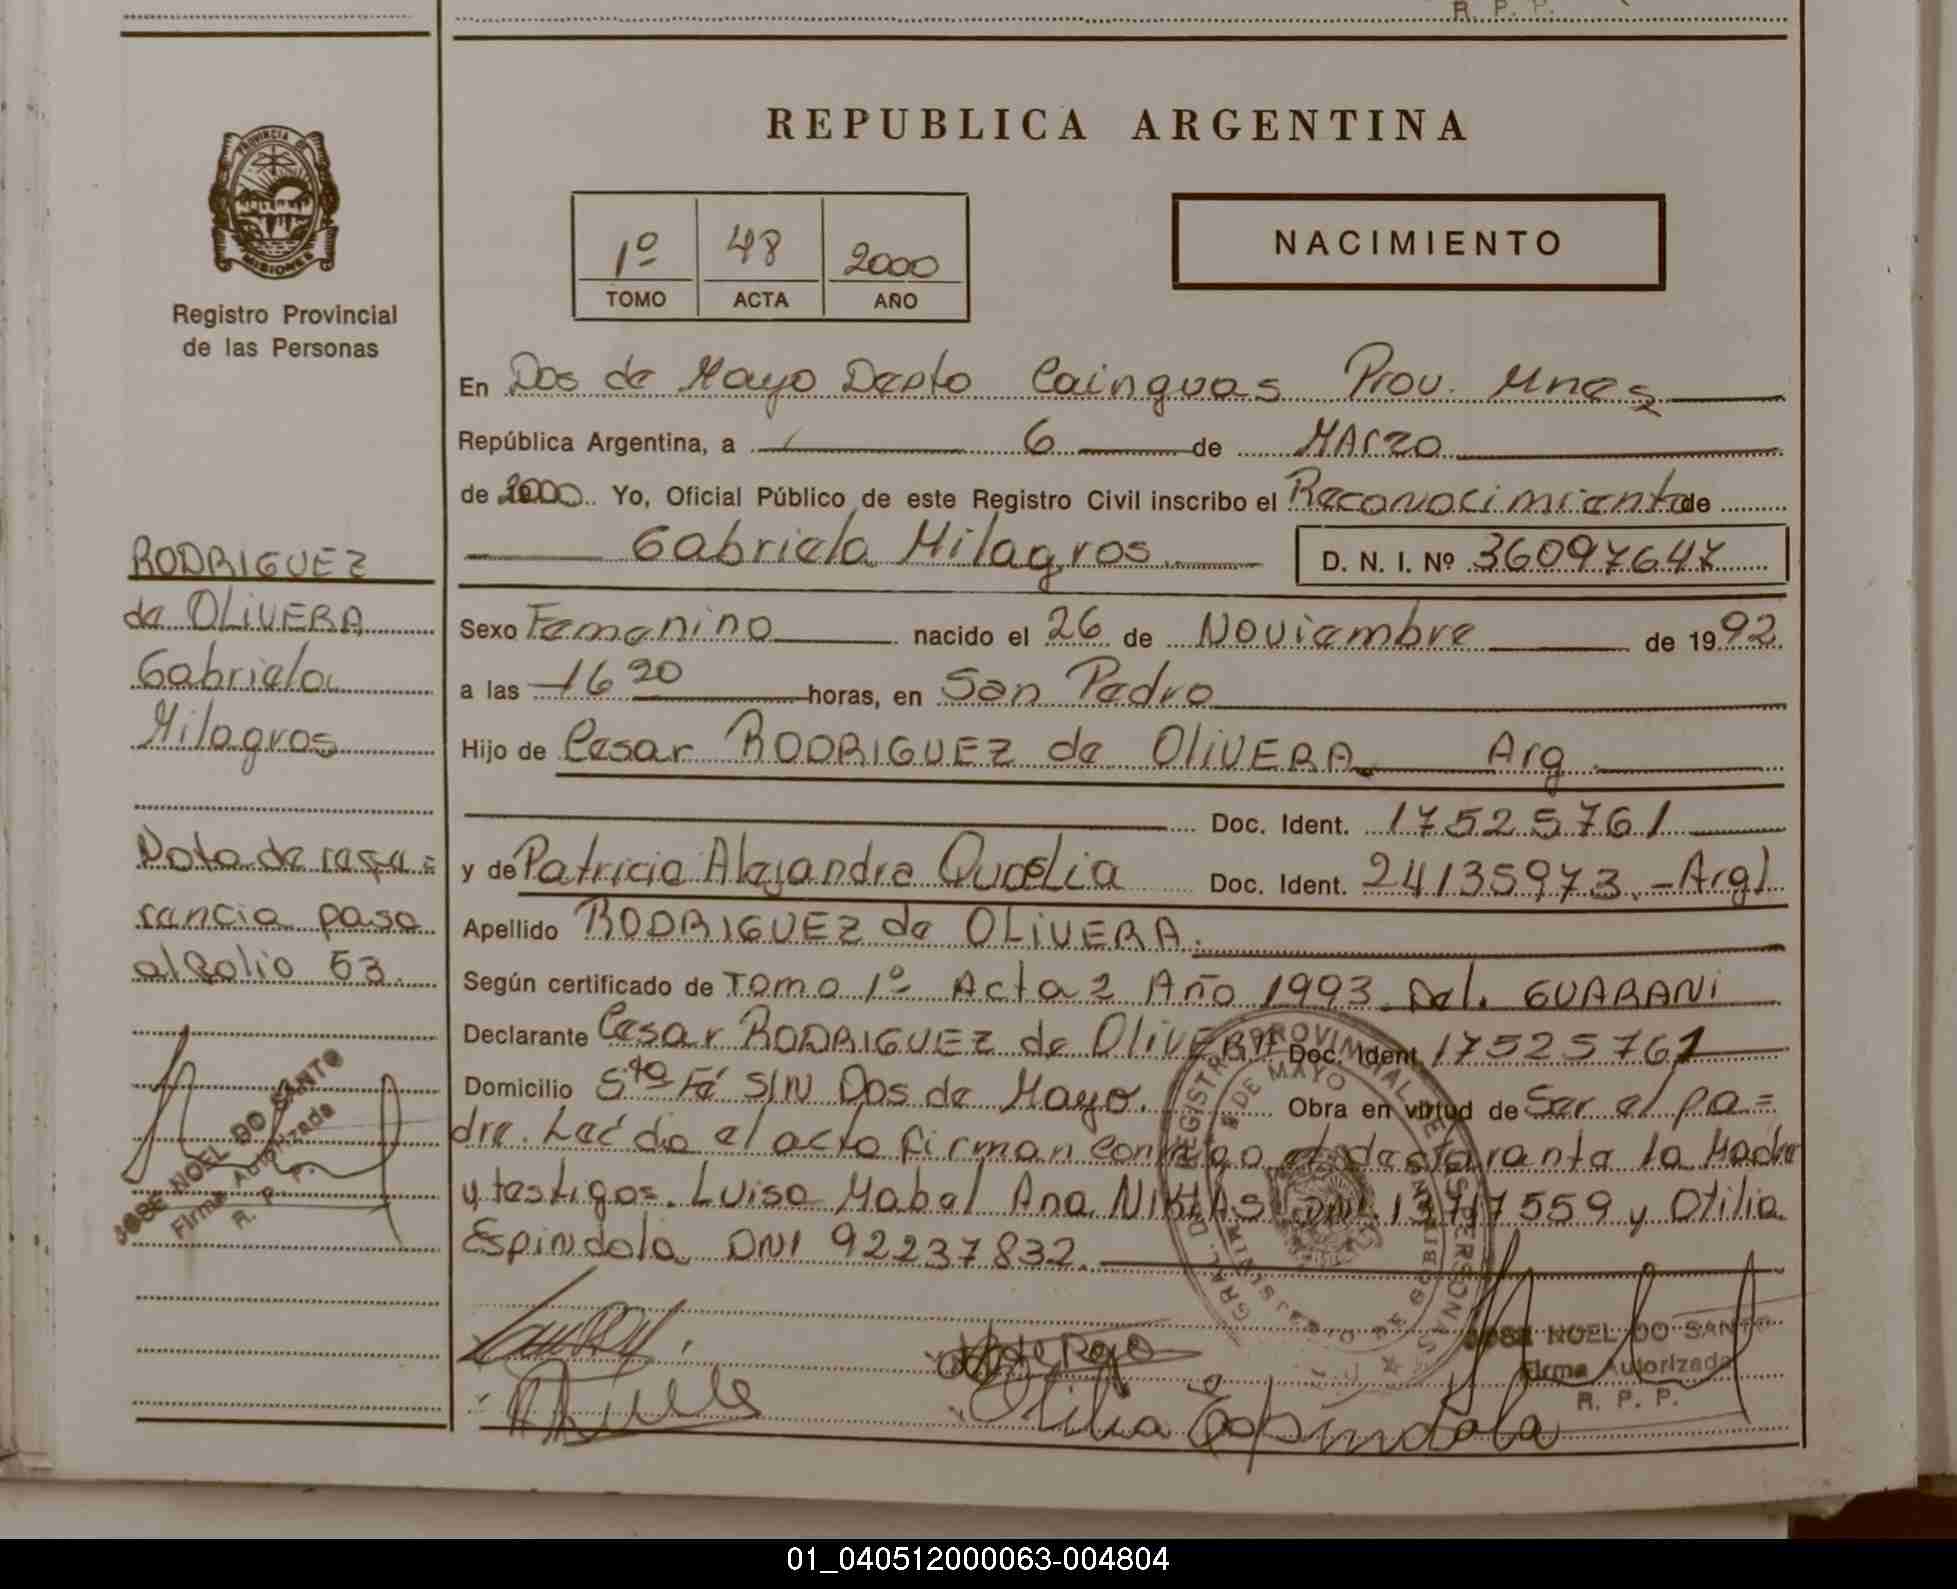 R. P. P.
REPUBLICA ARGENTINA
PROVINCIA DE
MISIONES
Registro Provincial
de las Personas
1º 48 2000
TOMO ACTA AÑO
NACIMIENTO
En Dos de Mayo Depto Cainguas Prov. Mnes
República Argentina, a 6 de Marzo
de 2000 Yo, Oficial Público de este Registro Civil inscribo el Reconocimiento de
Gabriela Milagros D. N. I. Nº 36097647
Sexo Femenino nacido el 26 de Noviembre de 1992
a las 16 20 horas, en San Pedro
Hijo de Cesar RODRIGUEZ de OLIVERA Arg
Doc. Ident. 17525761
y de Patricia Alejandra Doc. Ident. 24135973.-Arg)
Apellido RODRIGUEZ de OLIVERA.
Según certificado de Tomo 1º Acta 2 Año 1993 Del. GUARANI
Declarante Cesar RODRIGUEZ de OLIVERA Doc. Ident. 17525761
Domicilio Sta Fé S/N Dos de Mayo. Obra en virtud de Ser el pa=
dre. Leído el acto firman conmigo el declarante la Madre
y testigos. Luisa Mabel Ana DNI. 13717559 y Otilia
Espindola DNI 92237832.
RODRIGUEZ
de OLIVERA
Gabriela
Milagros
Nota de refe=
rencia pasa
al folio 53.
JOSE NOEL DO SANTO
Firma Autorizada
R. P. P.
Otilia Espindola
JOSE NOEL DO SANTO
Firma Autorizada
R. P. P.
01_040512000063-004804